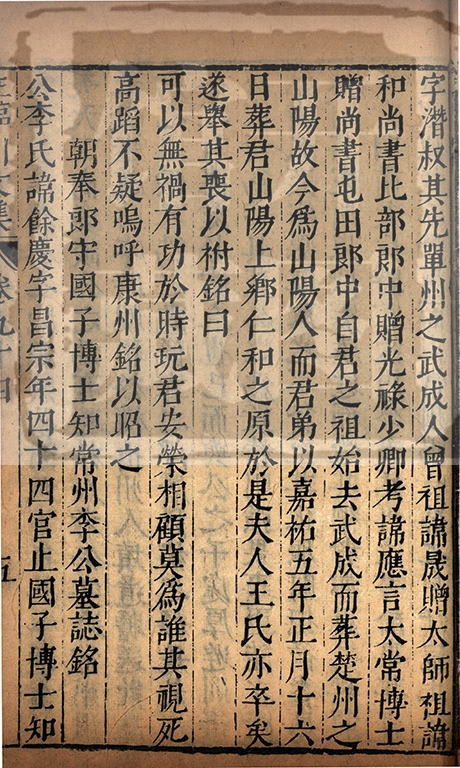 字潛叔其先單州之武成人曾祖諱晟贈太師祖諱
和尚書比部郎中贈光祿少卿考諱應言太常博士
贈尚書屯田郎中自君之祖始去武成而葬楚州之
山陽故今爲山陽人而君弟以嘉祐五年正月十六
日葬君山陽上鄉仁和之原於是夫人王氏亦卒矣
遂舉其喪以祔銘曰
可以無禍有功於時玩君安榮相顧莫爲誰其視死
高蹈不疑嗚呼康州銘以昭之
朝奉郎守國子博士知常州李公墓誌銘
公李氏諱餘慶字昌宗年四十四官止國子博士知
王臨川文集 卷九十四 五